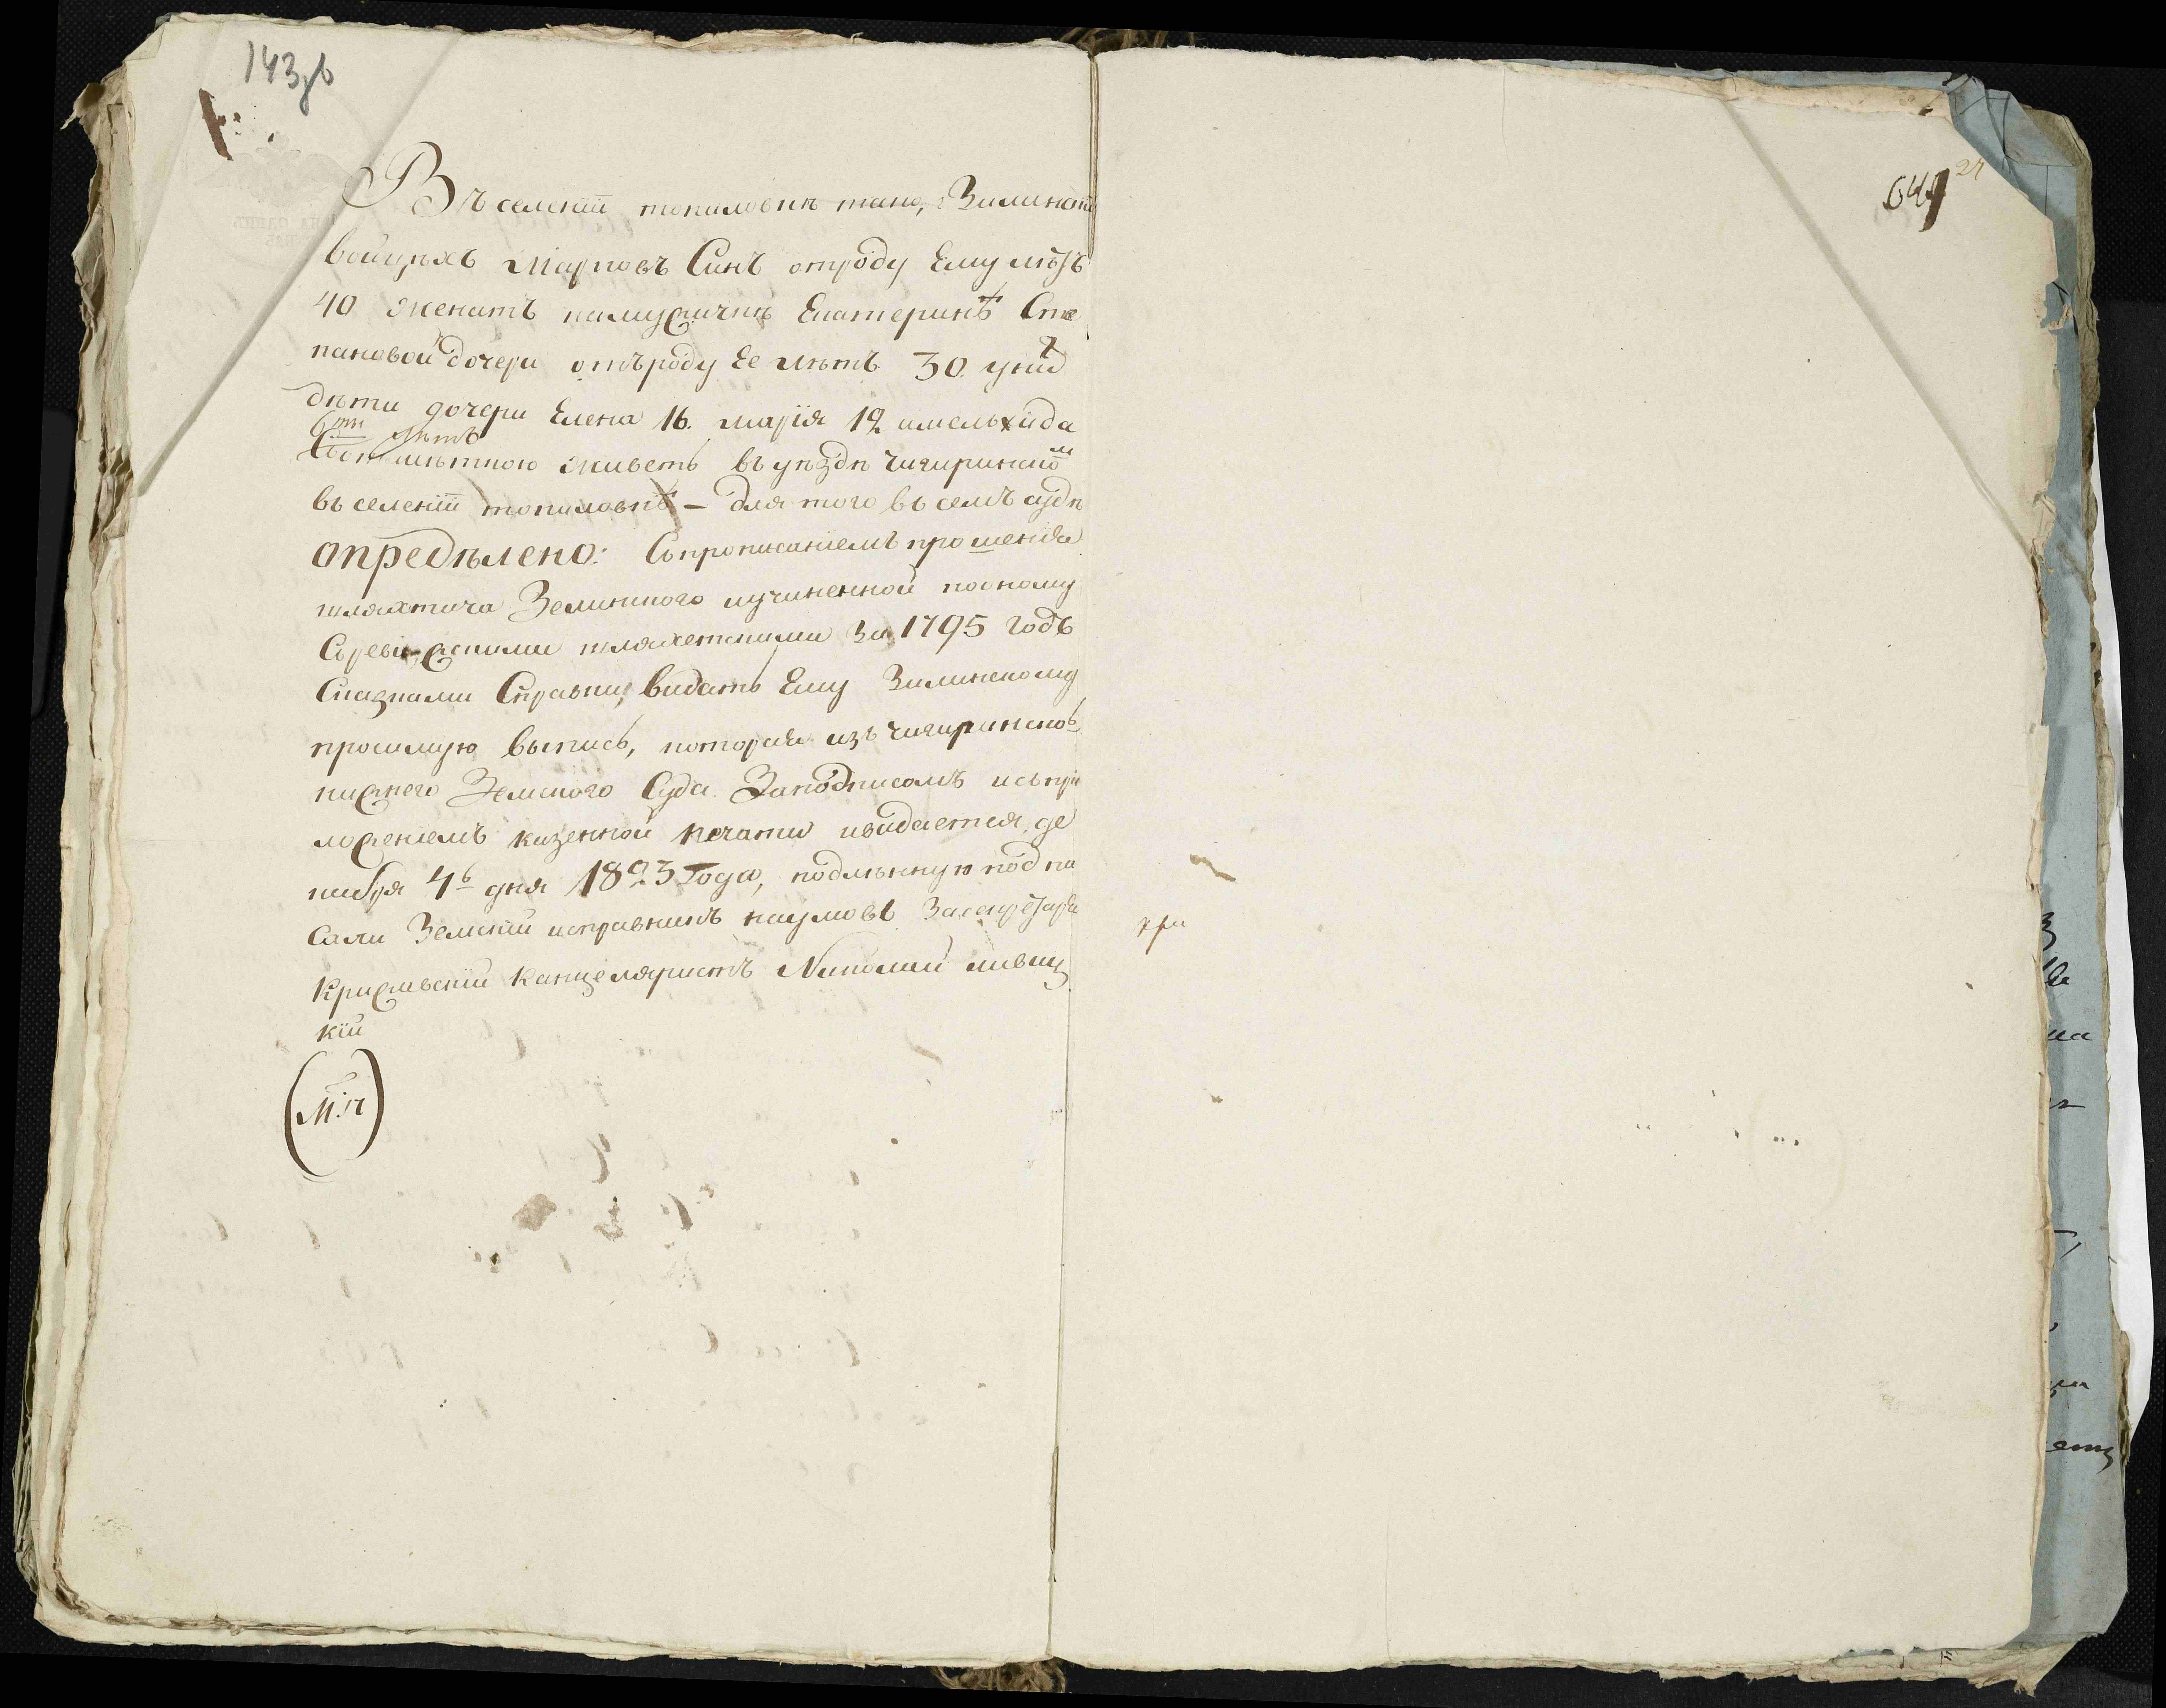 143 зв
Въ селеніи топиловкѣ тако, Зилинскій
войцѣхъ Марковъ Синъ отроду Ему лѣтъ
40 женатъ намужичкѣ Екатеринѣ Сте
пановой дочери отъроду Ее лѣтъ 30. унихъ
дѣти дочери Елена 16. марія 12
6ти лѣтъ
лѣтною живетъ въ уѣздѣ чигиринском
въ селеніи топиловкѣ – для того въ семъ судѣ
опредѣлено: Съпрописаніемъ прошенія
шляхтича Зелинского иучиненной поономy
Съревизскими шляхетскими За 1795 годъ
Сказками Справки, видать Ему Зилинскому
просимую выпись, которая изъ чигиринско
нижнего Земского Суда Заподписомъ исъпри
ложеніемъ казенной печати ивидается, де
кабря 4ь дня 1823 Года, подлѣнную подпи
сали Земскій исправникъ наумовъ Засекретаря
Крижевскій Канцеляристъ Николай ливиц
кій
(М:П)
649
24